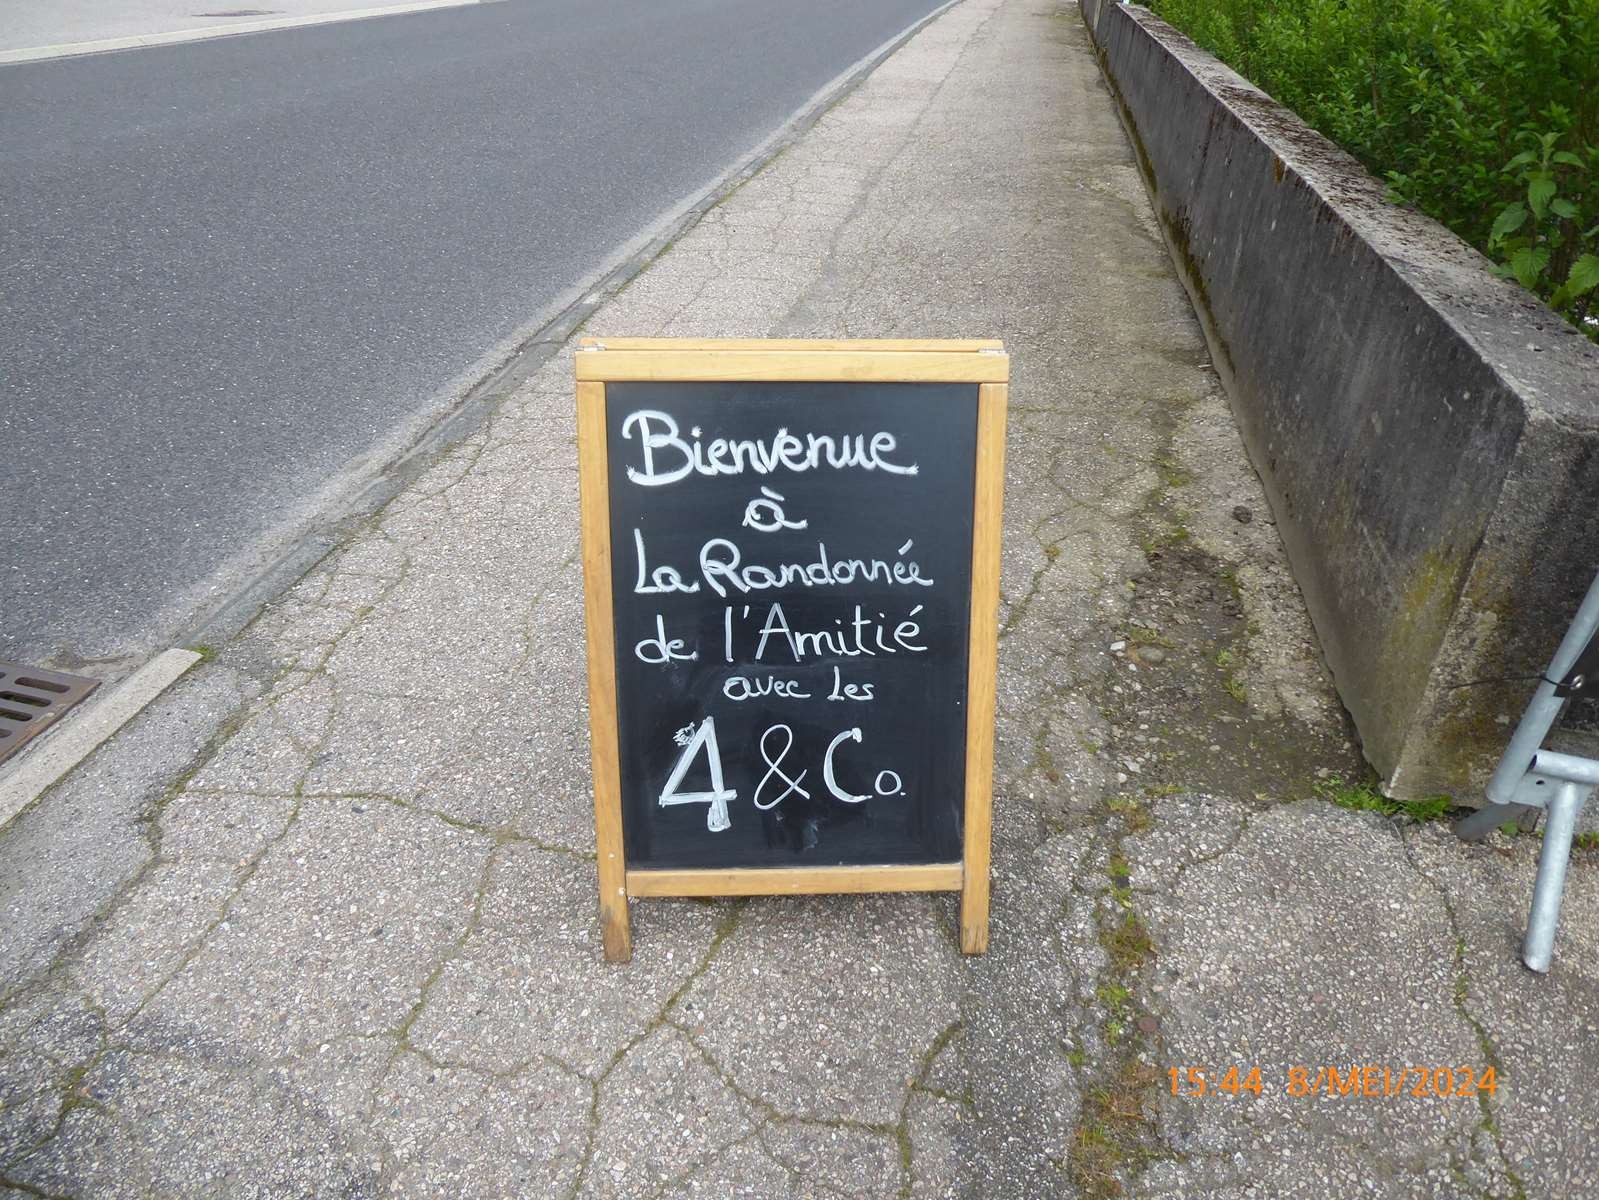 Bienvenue
à
La Randonnée
de l'Amitié
avec les
4 & Co.
15:44 8/MEI/2024